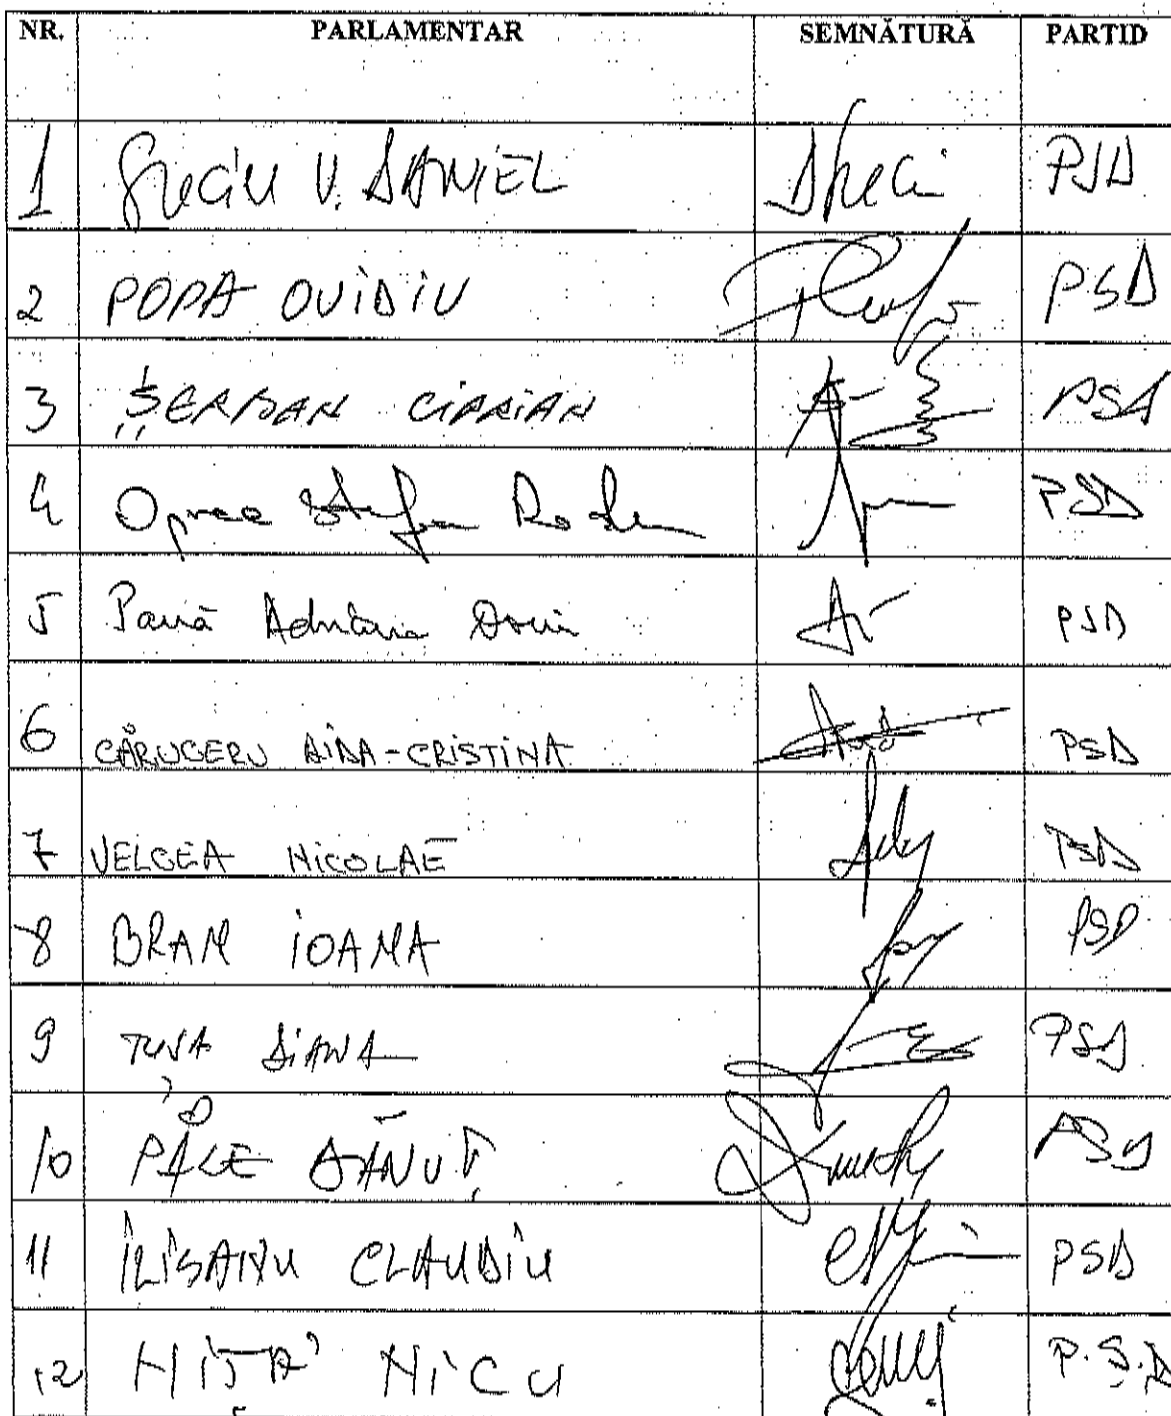 NR. PARLAMENTAR SEMNĂTURĂ PARTID
1 Suciu V. DANIEL PSD
2 POPA OVIDIU PSD
3 ȘERBAN CIPRIAN PSD
4 Oprea Ștefan Radu PSD
5 Pană Adriana Doina PSD
6 CĂRUCERU AIDA-CRISTINA PSD
7 VELCEA NICOLAE PSD
8 BRAN IOANA PSD
9 TUȘA DIANA PSD
10 PALE DĂNUȚ PSD
11 ILIȘANU CLAUDIU PSD
12 NIȚĂ NICU P.S.D